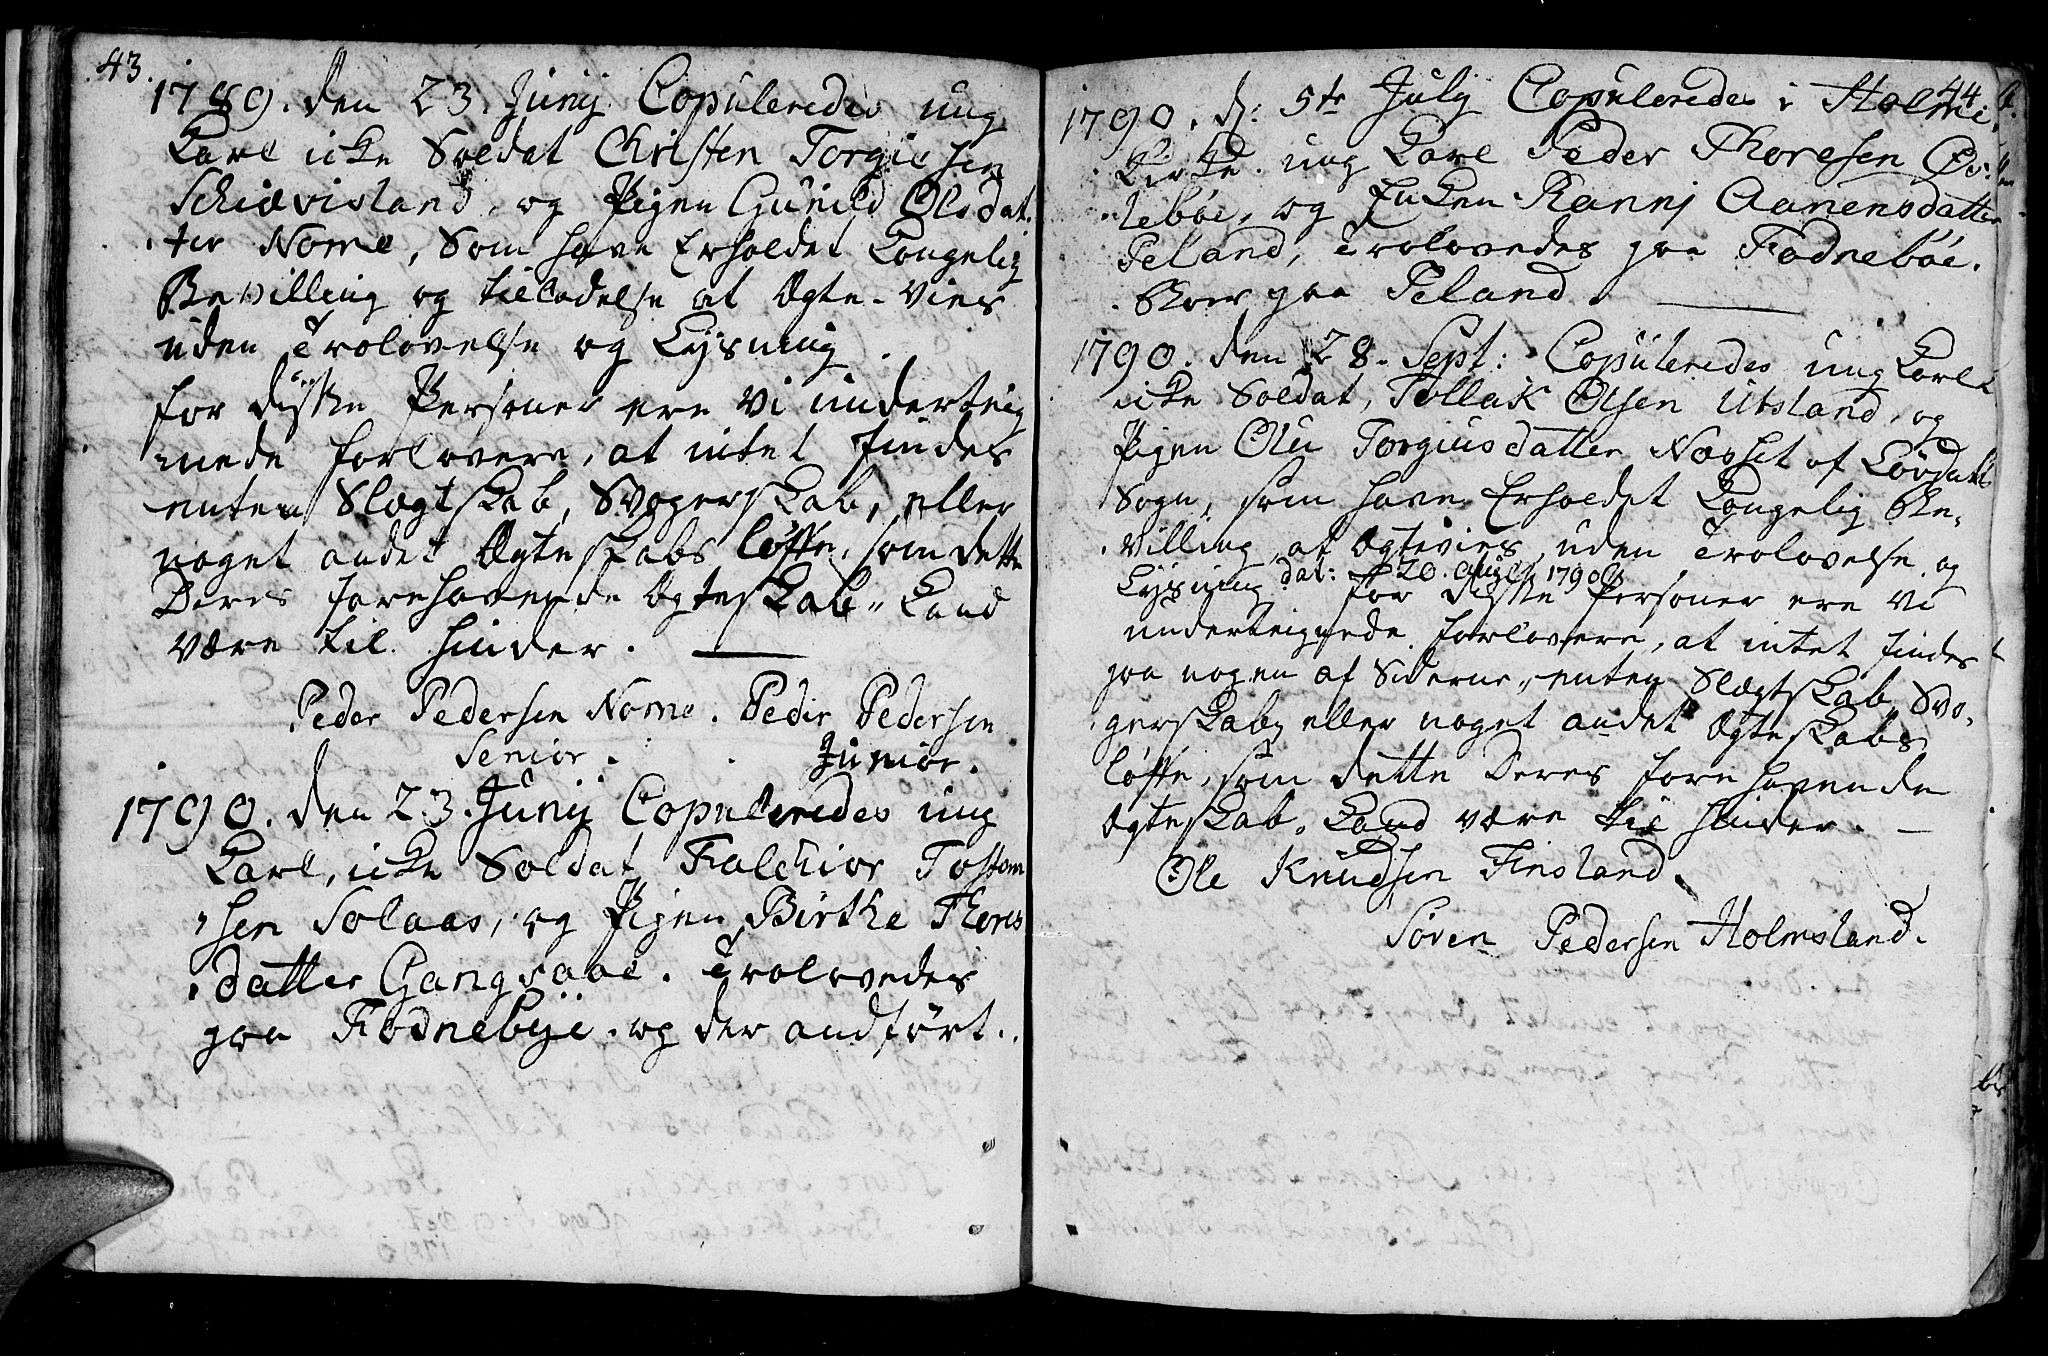 43.
1789. den 23. Junij Copuleredes ung
Karl icke Soldat Christen Torgiesen
Schievisland, og Pigen Gunild Olsdat¬
ter Nome, som have Erholdet Kongelig
Bevilling og tilladelse at Ægte-vies
uden Trolovelse og Lysning.
for disse Personer ere Vi underteig
nede forlovere, at intet findes
enten Slægtskab, Svogerskab, eller
noget andet Ægteskabs løffte, som dette
Deres forehavende Ægteskab, kand
være til hinder.
Peder Pedersen Nome. Peder Pedersen
Senior. Junior.
1790. den 23. Junij Copuleredes ung
Karl, icke Soldat Falchior Tostom
sen Solaas, og Pigen Birthe Thores
datter Gangsaae. Trolovedes
paa Fodnebye. og der andført.
44
1790. d: 5te July Copuleredes i Holme
Kirke. ung Karl Peder Thoresen
lebøe, og Enken Rannj Aanensdatter
Peland, Trolovedes paa Fodnebøe.
Boer paa Peland.
1790. den 28. Sept: Copuleredes ung Karl
icke Soldat, Tollak Olsen Utsland, og
Pigen Olu Torgiusdatter Næsset af Løvdals
Sogn, som have Erholdet Kongelig Be¬
villing, at Ægtevies, uden Trolovelse og
Lysning dat: 20. August 1790
for disse Personer ere Vi
underteignede forlovere, at intet findes
paa nogen af Siderne, enten Slægtskab, Svo¬
gerskab, eller noget andet Ægteskabs
løffte, som dette Deres forehavende
Ægteskab, kand være til hinder.
Ole Knudsen Finsland.
Søren Pedersen Holmsland.